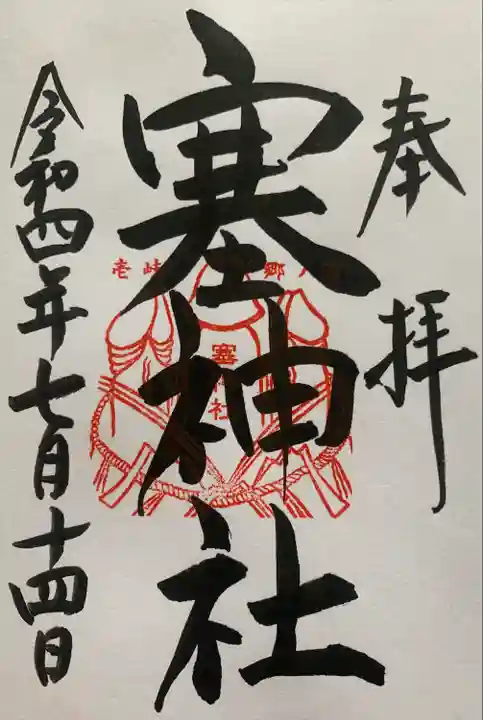 奉拝
塞神社
壱岐
郷
塞
社
令和四年七月十四日